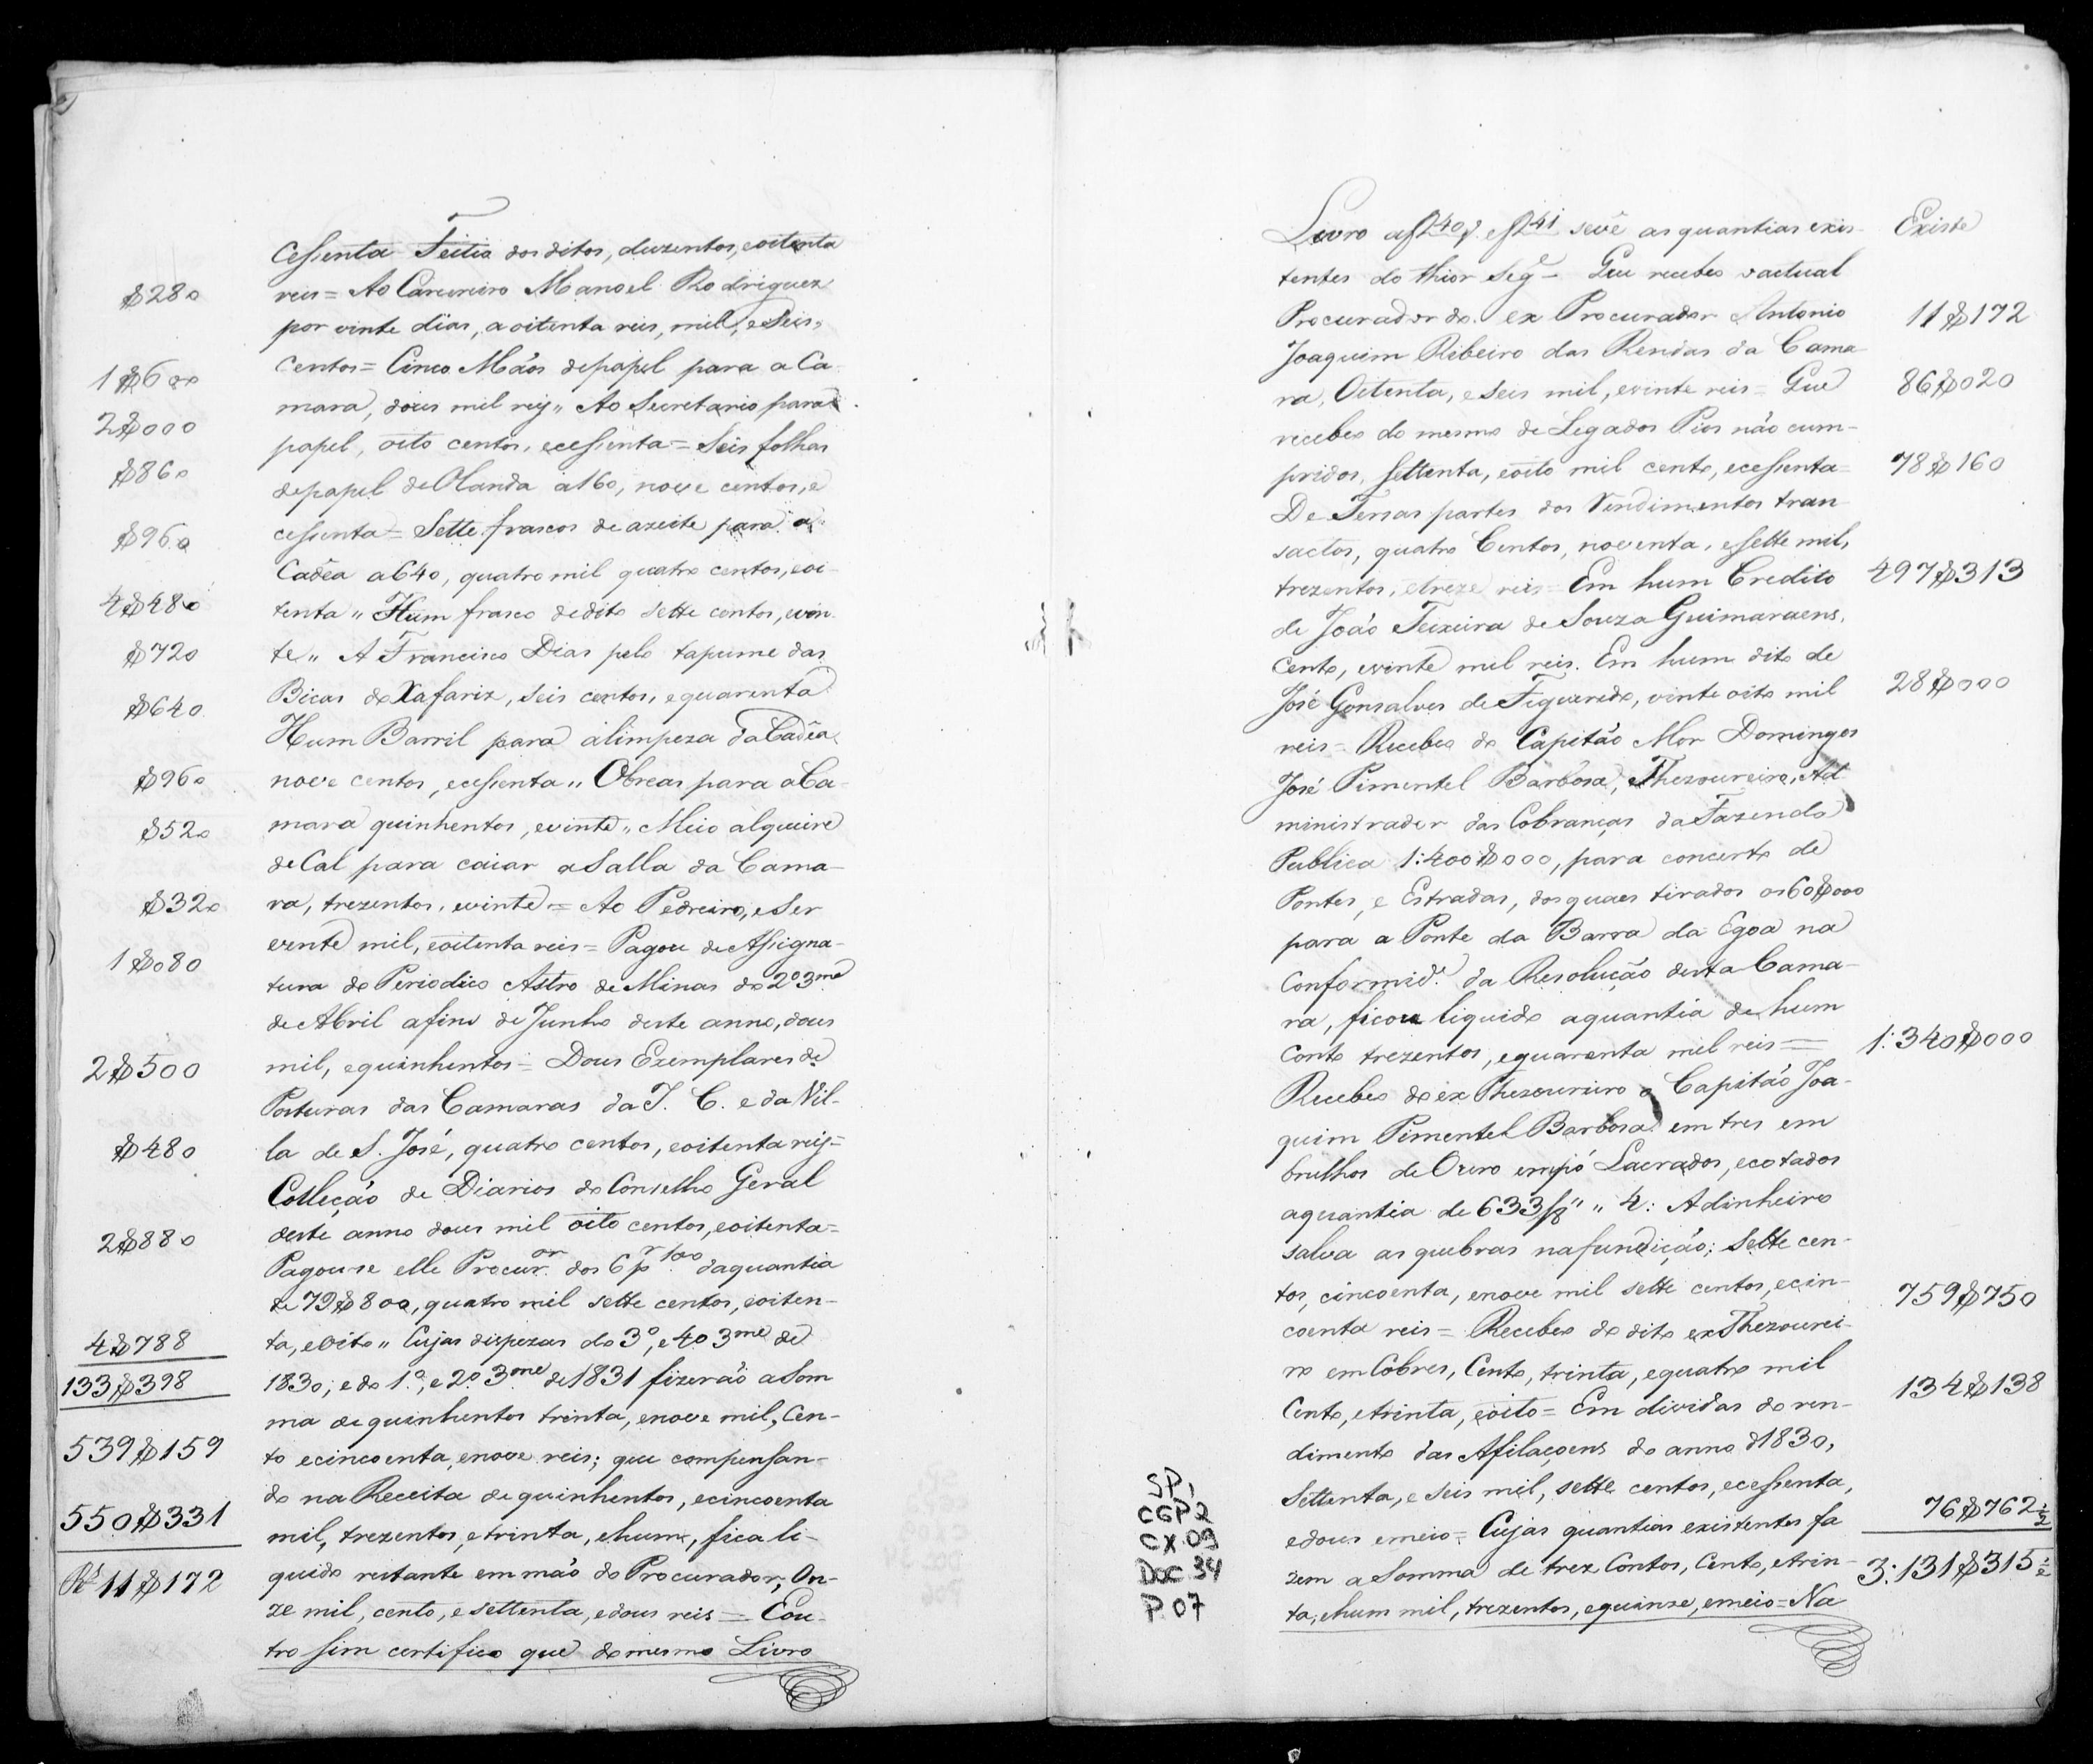 Cessenta Feitio dos ditos, duzentos, eoitenta
$280 reis = Ao Carcereiro Manoel Rodriguez
por vinte dias, a oitenta reis, mil, e Seis,
1$600 Centos = Cinco Mãos depapel para a Ca-
2$000 mara, dous mil reis,, Ao Secretario para
papel, oito centos, ecessenta = Seis folhas
$860 depapel de Olanda a160, nove centos, e
$960 cessenta = Sette frascos de azeite para a
Cadêa a640, quatro mil quatro centos, eoi-
4$480 tenta,, Hum frasco dedito sette centos, evin-
$720 te,, A Francisco Dias pelo tapume das
$640 Bicas do Xafariz, Seis centos, equarenta
Hum Barril para alimpeza daCadêa
$960 nove centos, ecessenta,, Obreas para aCa-
$520 mara quinhentos, evinte,, Meio alqueire
de Cal para caiar a Salla da Cama-
$320 ra, trezentos, evinte = Ao Pedreiro, e Ser
1$080 vente mil, eoitenta reis = Pagou de Assigna-
tura do Periodico Astro de Minas do 2º 3me
de Abril afim de Junho deste anno, dous
2$500 mil, equinhentos = Dous Exemplares de
Posturas das Camaras da I. C. e da Vil-
$480 la de S. José, quatro centos, eoitenta reis =
Colleção de Diarios do Conselho Geral
2$880 deste anno dous mil oito centos, eoitenta =
Pagou-se elle Procur.or dos 6 pr 100 daquantia
de 79$800, quatro mil sette centos, eoiten-
4$788 ta, eoito,, Cujas dispezas do 3º, e 4º 3me de
133$398 1830; e do 1º, e 2º 3me de 1831 fizerão a Som
ma de quinhentos trinta, enove mil, Cen-
539$159 to ecincoenta, enove reis; que compensan-
do na Receita de quinhentos, ecincoenta
550$331 mil, trezentos, etrinta, ehum, fica li-
Rs 11$172 quido restante em mão do Procurador, On-
ze mil, cento, e settenta, edous reis = Eou-
tro sim certifico que do mesmo Livro
Livro af 240 ef 241 sevê as quantias exis- Existe
tentes do thior Sege - Que recebeo oactual
Procurador do ex Procurador Antonio 11$172
Joaquim Ribeiro das Rendas da Cama
ra, Oitenta, e Seis mil, evinte reis = Que 86$020
recebeo do mesmo de Legados Pios não cum-
pridos, Settenta, eoito mil cento, ecessenta = 78$160
De Tersas partes dos Rendimentos tran-
sactos, quatro Centos, noventa, eSette mil,
trezentos, etreze reis = Em hum Credito 497$313
de João Teixeira de Souza Guimaraens,
Cento, evinte mil reis. Em hum dito de
José Gonsalves de Figueredo, vinte oito mil 28$000
reis = Recebeo do Capitão Mor Domingos
José Pimentel Barbosa, Thezoureiro, Ad
ministrador das Cobranças da Fazenda
Publica 1:400$000, para concerto de
Pontes, e Estradas, dos quaes tirados os60$000
para a Ponte da Barra da Egoa na
Conformide da Resolução desta Cama-
ra, ficou liquido aquantia de hum
Conto trezentos, equarenta mil reis = 1:340$000
Recebeo do ex Thezoureiro o Capitão Joa-
quim Pimentel Barbosa em tres em
brulhos de Ouro empó Lacrados, ecotados
aquantia de 633/8,, ,, 4: Adinheiro
salva as quebras nafundição; Sette cen-
tos, cincoenta, enove mil sette centos, ecin- 759$750
coenta reis = Recebeo do dito exThezourei-
ro em Cobres, Cento, trinta, equatro mil
Cento, etrinta, eoito = Em dividas do ren- 134$138
dimento das Afilaçoens do anno d1830,
Settenta, e Seis mil, sette centos, ecessenta,
edous emeio = Cujas quantias existentes fa 76$762½
zem a Somma de trez Contos, Cento, etrin- 3:131$315½
ta, ehum mil, trezentos, equinze, emeio = Na
SP,
CGP2
CX 09
Doc 34
P. 07